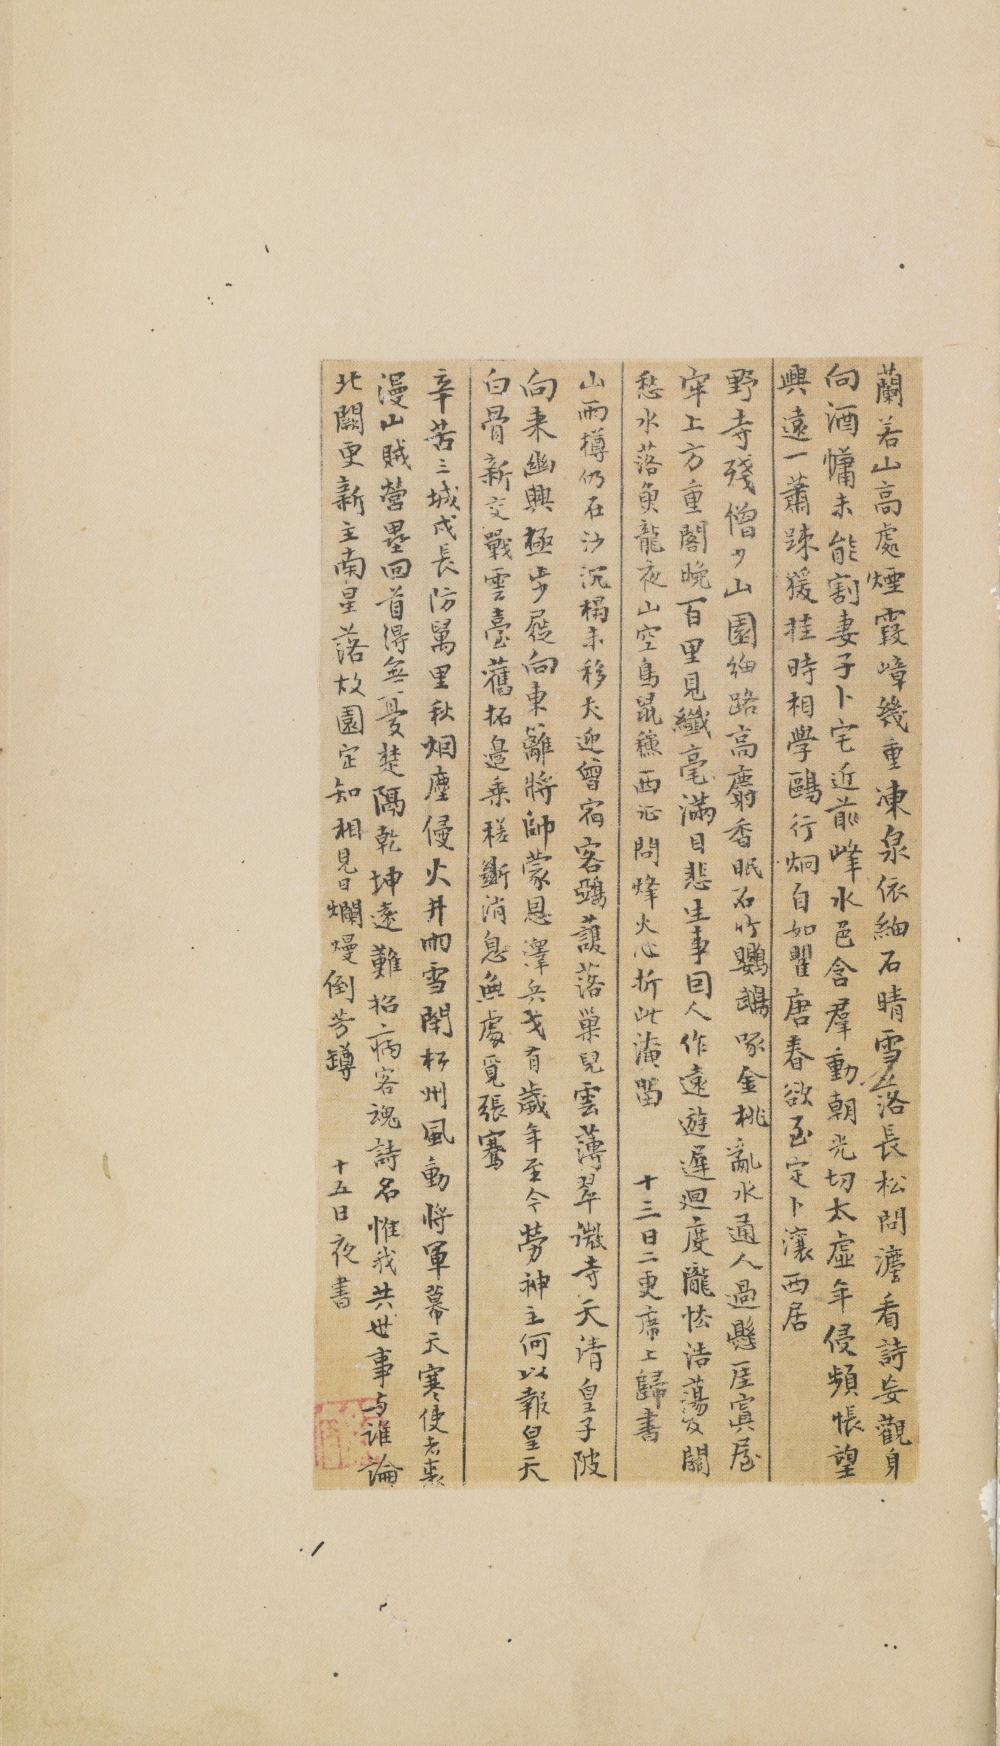 蘭若山高處煙霞嶂幾重凍泉依細石晴雪落長松問灋看詩妄觀身
向酒慵未能割妻子卜宅近前峰水色含羣動朝光切太虛年侵頻悵望
興遠一蕭踈猨挂時相學鷗行炯自如瞿唐春欲至定卜瀼西居
野寺殘僧少山園細路高麝香眠石竹鸚鵡啄金桃亂水通人過懸崖寘屋
牢上方重閣晚百里見纖毫滿目悲生事因人作遠遊遲迴度隴怯浩蕩及關
愁水落魚龍夜山空鳥鼠穐西征問烽火心折此淹留 十三日二更席上歸書
山雨樽仍在沙沉榻未移犬迎曾宿客鵶護落巢兒雲薄翠微寺天清皇子陂
向來幽興極步屣向東籬將帥蒙恩澤兵戈有歲年至今勞神主何以報皇天
白骨新交戰雲臺舊拓邊乘槎斷消息無處覓張騫
辛苦三城戍長防萬里秋烟塵侵火井雨雪閉松州風動將軍幕天寒使者裘
漫山賊營壘回首得無憂楚隔乾坤遠難招病客魂詩名惟我共世事与誰論
北闕更新主南星落故園定知相見日爛熳倒芳罇 十五日夜書